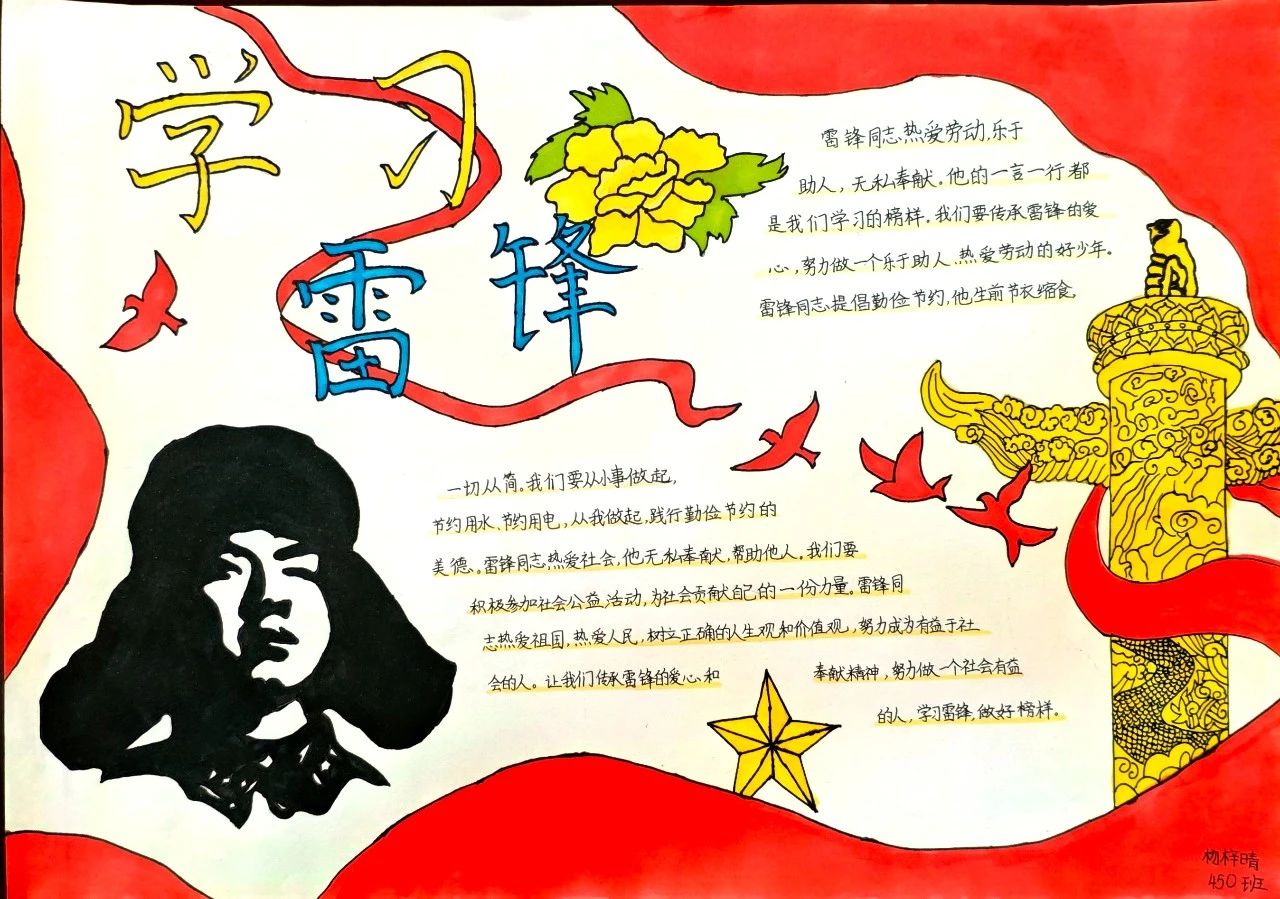 学习
雷锋
雷锋同志热爱劳动,乐于
助人,无私奉献。他的一言一行都
是我们学习的榜样。我们要传承雷锋的爱
心,努力做一个乐于助人、热爱劳动的好少年。
雷锋同志提倡勤俭节约,他生前节衣缩食,
一切从简。我们要从小事做起,
节约用水、节约用电,从我做起,践行勤俭节约的
美德。雷锋同志热爱社会,他无私奉献,帮助他人。我们要
积极参加社会公益活动,为社会贡献自己的一份力量。雷锋同
志热爱祖国,热爱人民,树立正确的人生观和价值观,努力成为有益于社
会的人。让我们传承雷锋的爱心和
奉献精神,努力做一个社会有益
的人,学习雷锋,做好榜样。
杨梓晴
450班